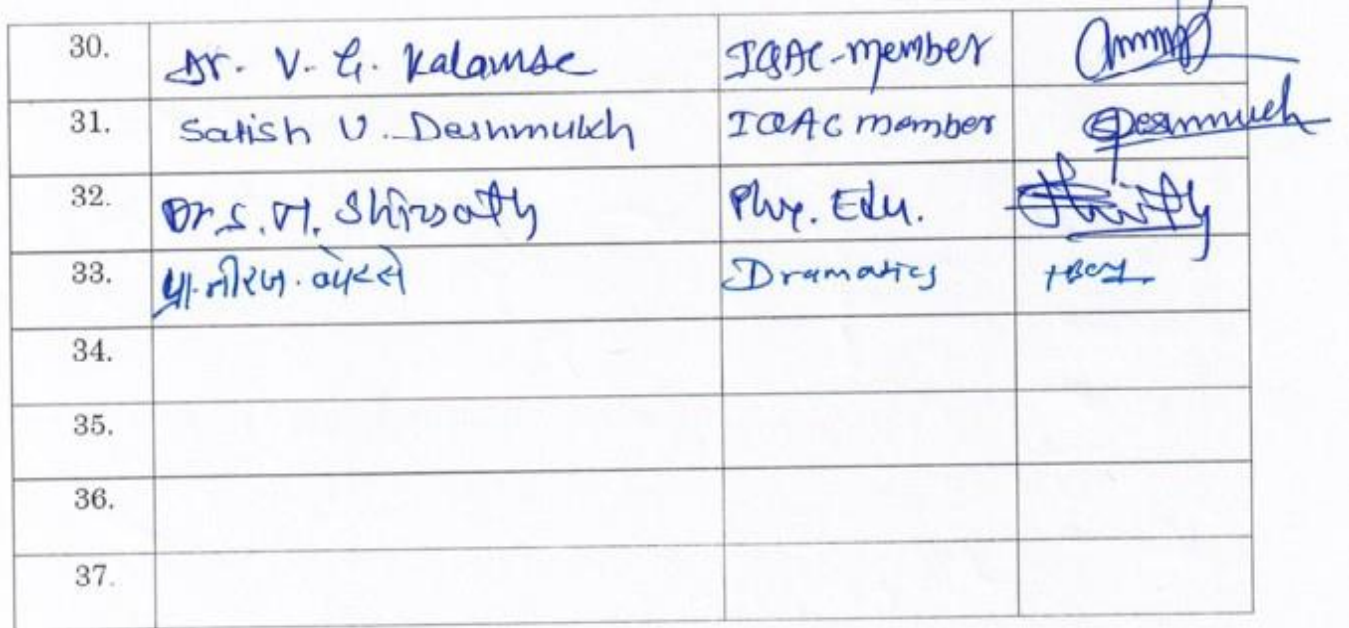 30. Dr. V. G. Kalamse IQAC-member
31. Satish U. Deshmukh IQAC member Deshmukh
32. Dr. S. M. Shirsath Phy. Edu.
33. प्रा. नीरज. बोरसे Dramatics
34.
35.
36.
37.